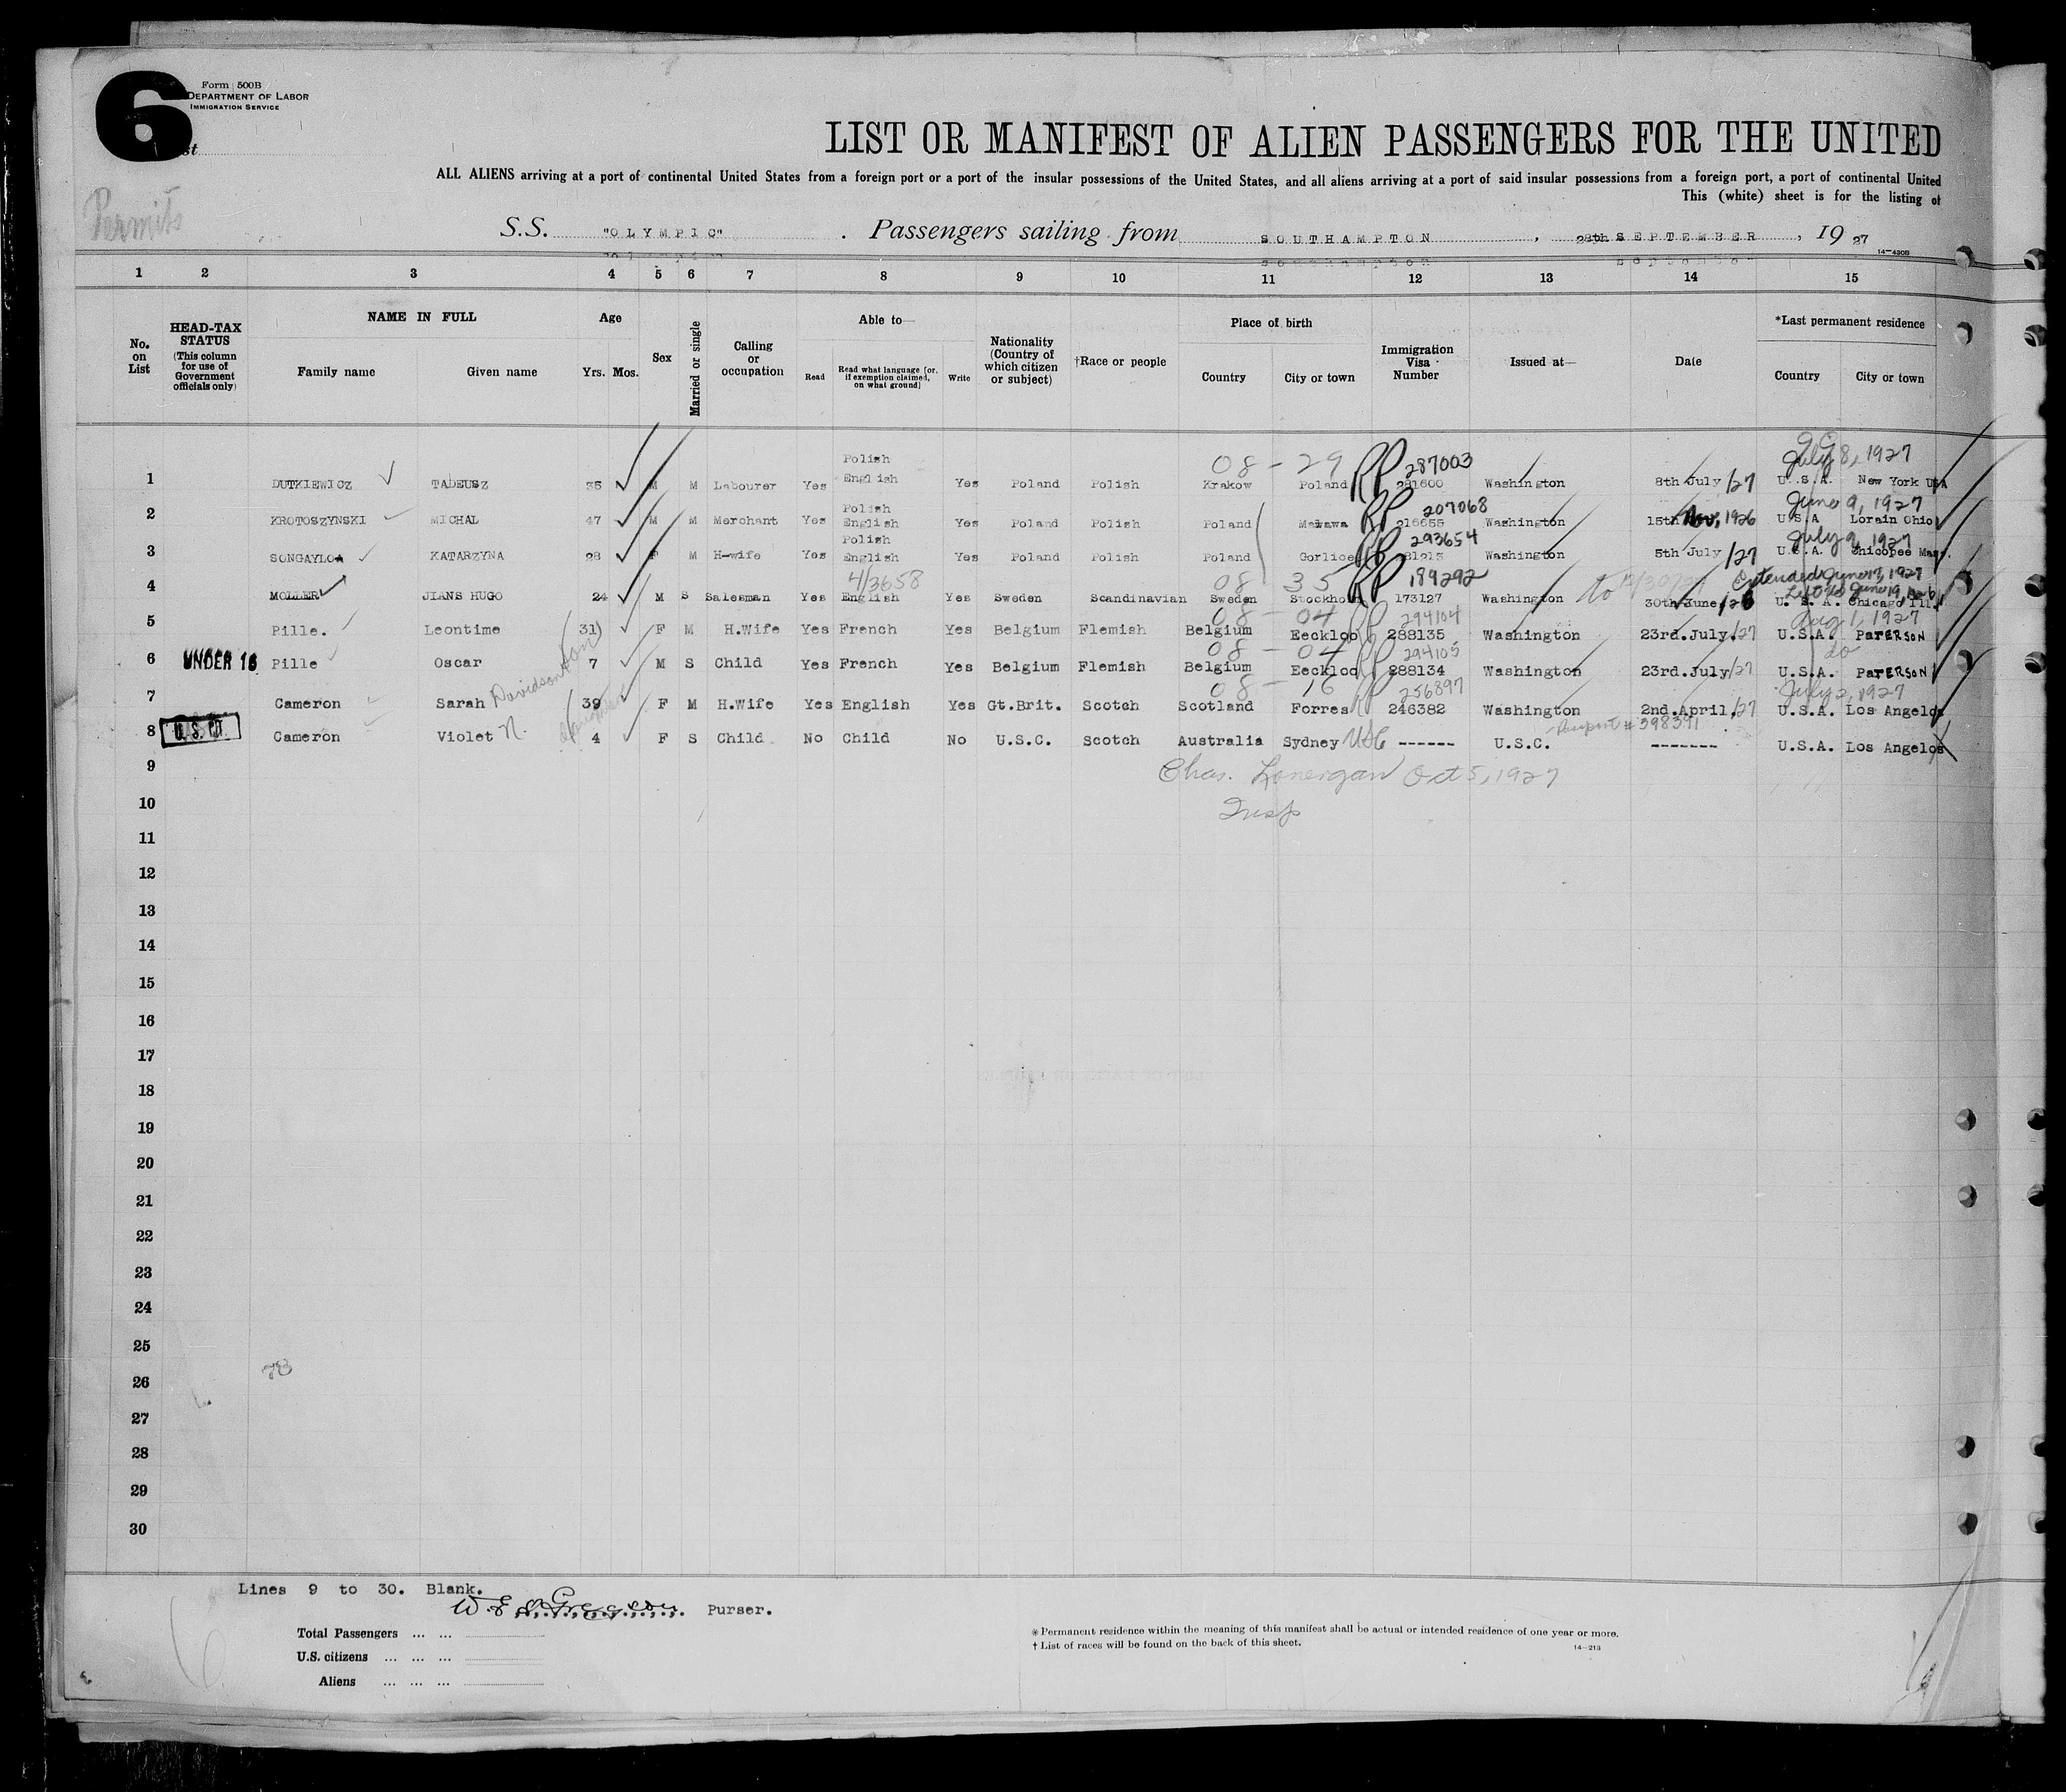 6
Form 500B
DEPARTMENT OF LABOR
IMMIGRATION SERVICE
st
Permits
LIST OR MANIFEST OF ALIEN PASSENGERS FOR THE UNITED
ALL ALIENS arriving at a port of continental United States from a foreign port or a port of the insular possessions of the United States, and all aliens arriving at a port of said insular possessions from a foreign port, a port of continental United
This (white) sheet is for the listing of
S.S. "OLYMPIC" . Passengers sailing from SOUTHAMPTON , 28th SEPTEMBER , 19 27
14—430B
1 2 3 4 5 6 7 8 9 10 11 12 13 14 15
No. on List
HEAD-TAX STATUS (This column for use of Government officials only)
NAME IN FULL
Family name Given name
Age
Yrs. Mos.
Sex
Married or single
Calling or occupation
Able to—
Read Read what language [or, if exemption claimed, on what ground] Write
Nationality (Country of which citizen or subject)
†Race or people
Place of birth
Country City or town
Immigration Visa Number
Issued at—
Date
*Last permanent residence
Country City or town
08 - 29 RP 287003 July 8, 1927
1 DUTKIEWICZ TADEUSZ 35 M M Labourer Yes Polish English Yes Poland Polish Krakow Poland 281600 Washington 8th July /27 U.S.A. New York USA
RP 207068 June 9, 1927
2 KROTOSZYNSKI MICHAL 47 M M Merchant Yes Polish English Yes Poland Polish Poland 216655 Washington 15th Nov, 1926 U.S.A Lorain Ohio
RP 293654 July 9, 1927
3 SONGAYLOA KATARZYNA 28 F M H-wife Yes Polish English Yes Poland Polish Poland Gorlice Washington 5th July /27 U.S.A. Chicopee Mass.
4/3658 08 35 RP 189292 to Extended June 17, 1927
4 MOLLER JIANS HUGO 24 M S Salesman Yes English Yes Sweden Scandinavian Sweden Stockholm 173127 Washington 30th June /26 U.S.A. Chicago Ill.
08 - 04 RP 294104 Aug 1, 1927
5 Pille. Leontime 31 F M H.Wife Yes French Yes Belgium Flemish Belgium Eeckloo 288135 Washington 23rd.July./27 U.S.A. PATERSON
08 - 04 RP 294105 do
6 UNDER 16 Pille Oscar son 7 M S Child Yes French Yes Belgium Flemish Belgium Eeckloo 288134 Washington 23rd.July/27 U.S.A. PATERSON
08 - 16 RP 256897 July 2, 1927
7 Cameron Sarah Davidson 39 F M H.Wife Yes English Yes Gt.Brit. Scotch Scotland Forres 246382 Washington 2nd.April./27 U.S.A. Los Angelos
Passport # 398391
8 U.S. Cit. Cameron Violet N. daughter 4 F S Child No Child No U.S.C. Scotch Australia Sydney USC ------ U.S.C. ------- U.S.A. Los Angelos
9
Chas. Lonergan Oct 5, 1927
10
Insp
11
12
13
14
15
16
17
18
19
20
21
22
23
24
25
26
27
28
29
30
Lines 9 to 30. Blank.
W.E.S. Gregson Purser.
Total Passengers ... ...
U.S. citizens ... ... ...
Aliens ... ... ...
* Permanent residence within the meaning of this manifest shall be actual or intended residence of one year or more.
† List of races will be found on the back of this sheet.
14—213
6